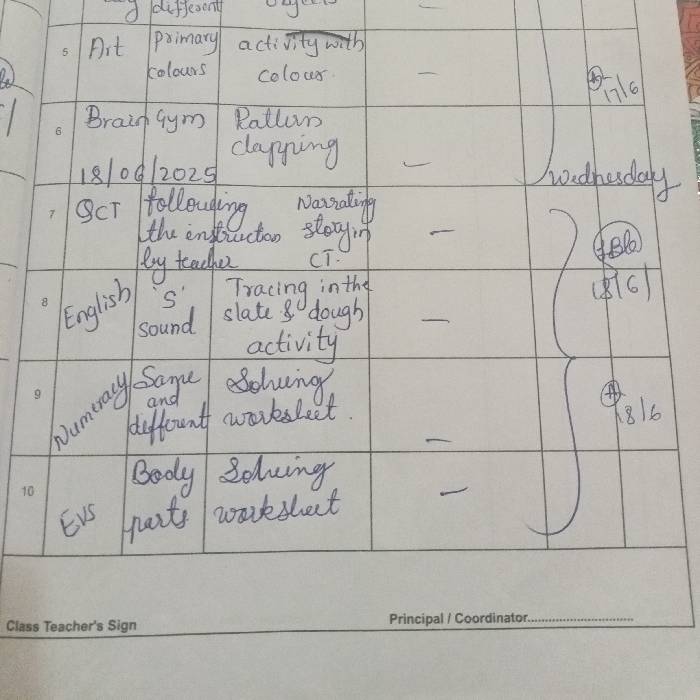 different
5 Art Primary colours activity with colour. — 17/6
6 Brain Gym Pattern clapping —
18/06/2025 Wednesday
7 QCT following the instruction by teacher Narrating story in CT. — 18/6
8 English 'S' sound Tracing in the slate & dough activity —
9 Numeracy Same and different Solving worksheet. — 18/6
10 EVS Body parts Solving worksheet —
Class Teacher's Sign Principal / Coordinator..............................